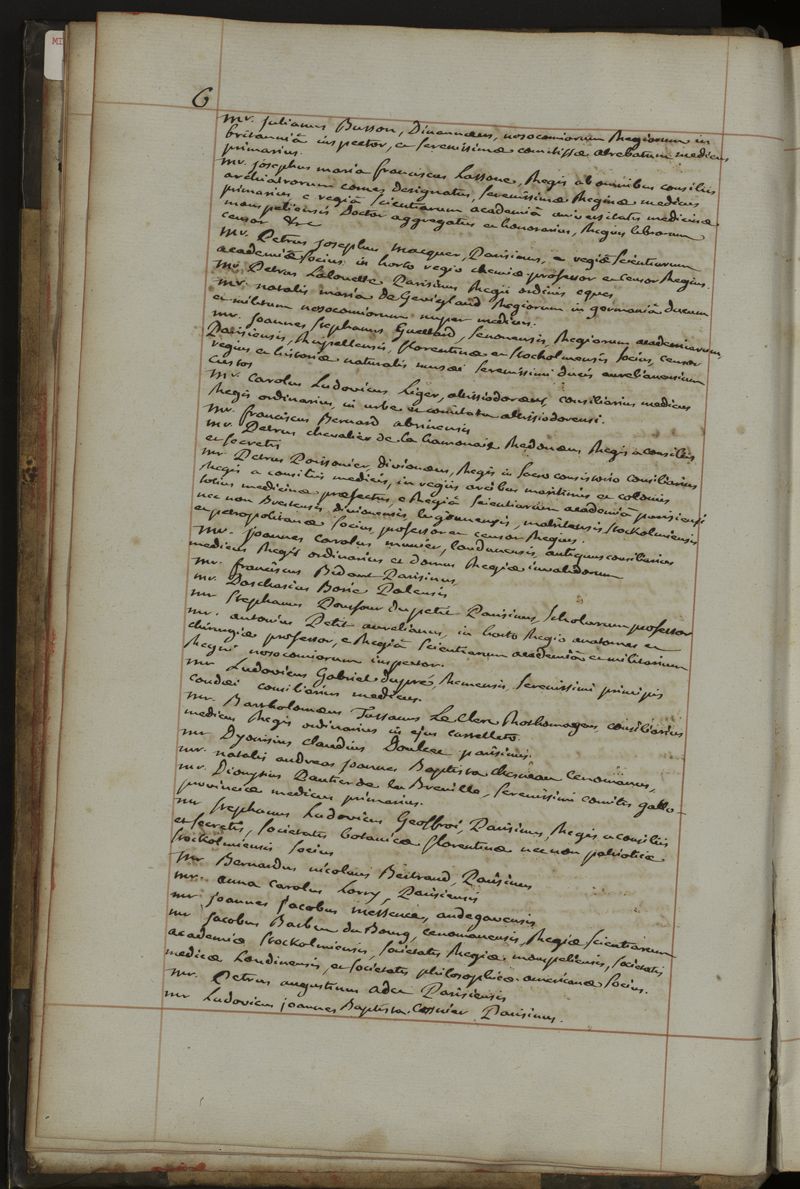 6
Mr. Julianus Busson, Dinannaeus, nosocomiorum Regiorum in
britanniâ inspector, et serenissimae comitissae atrebatum medicus
primarius.
Mr. Josephus maria franciscus Lassone, Regis ab omnibus consiliis
archiatrorum comes designatus, serenissimae Reginae medicus
primarius e regiâ scientiarum academiâ universitatis medicinae
monspeliensis Doctor aggregatus et honorarius, Regius librorum
censor &c
Mr. Petrus Josephus Macquer, Parisinus, e regiâ scientiarum
academiâ socius in horto regio chemiae professor et censor Regius.
Mr. Petrus Lalouette Parisinus Regii ordinis eques
Mr. natalis maria de Gevigland Regiorum in germaniâ ducum
et militum nosocomiorum nuper medicus.
Mr. Joannes Stephanus Guettard, senonensis, Regiarum academiarum,
Parisiensis, Rupellensis, florentinae et stockolmensis socius, censor
regius et historiae naturalis musaei serenissimi ducis aurelianensium
custos
Mr. Carolus Ludovicus Liger, altissiodoraeus, consiliarius medicus
Regis ordinarius, in urbe et comitatu altissiodorensi.
Mr. franciscus Bernard abrincensis
Mr. Petrus chevalier de la hamonais Redonaeus Regis a consiliis
et secretis
Mr Petrus Poissonier, divionaeus, Regis in sacro consistorio consiliarius
Regis a consiliis medicis, in regiis arcibus maritimis et coloniis
totius medicinae praefectus, e Regiâ scientiarum academiâ parisiensi
nec non Brestensis, divionensis lugdunensis, matritensis stockolmiensis
et petropolitanae socius, professor et censor Regius.
Mr. Joannes Carolus munier, laudunensis, antiquus consiliarius
medicus Regis ordinarius et domus Regiae invalidorum
Mr. franciscus Bidault Parisinus
Mr. Paschasius Borie Palensis
Mr Stephanus Pourfour Dupetit Parisinus, scholarum professor
Mr. antonius Petit aurelianus, in horto Regio anatomes et
chirurgiae professor, e Regiâ scientiarum academiâ et militarium
Regni nosocomiorum inspector.
Mr Ludovicus Gabriel Dupré, Remensis, serenissimi principis
condaei consiliarius medicus.
Mr. Bartholomaeus Tussanus Le Clerc Rothomagensis, consiliarius
medicus Regis ordinarius in ejus castelleto.
Mr Dyonisius claudius Doulcet parisinus.
Mr. natalis andreas Joannes Baptista chesneau cenomanus,
Mr. Dionysius Pautier de la Breuille, serenissimi comitis gallo-
provinciae medicus primarius.
Mr Stephanus Ludovicus Geoffroi, Parisinus, Regis a consiliis
et secretis, societatis botanicae florentinae nec non patrioticae
stockolmiensis socius
Mr Bernardus nicolaus Bertrand, Parisinus
Mr. anna carolus Lorry, Parisiensis
Mr Joannes Jacobus messence, andegavensis
Mr Jacobus Barbeu du Bourg, cenomanensis, Regiae scientiarum
academiae stockolmiensis, societatis Regiae monspeliensis, societatis
medicae Londinensis, et societatis philosophicae americanae socius.
Mr. Petrus augustinus adet Parisiensis
Mr Ludovicus Joannes Baptista Cosnier Parisinus.